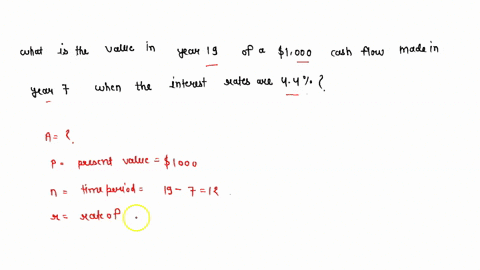 what is the value in year 19 of a $1,000 cash flow made in
year 7 when the interest rates are 4.4% ?
A = ?
P = present value = $1000
n = time period = 19 - 7 = 12
r = rate of